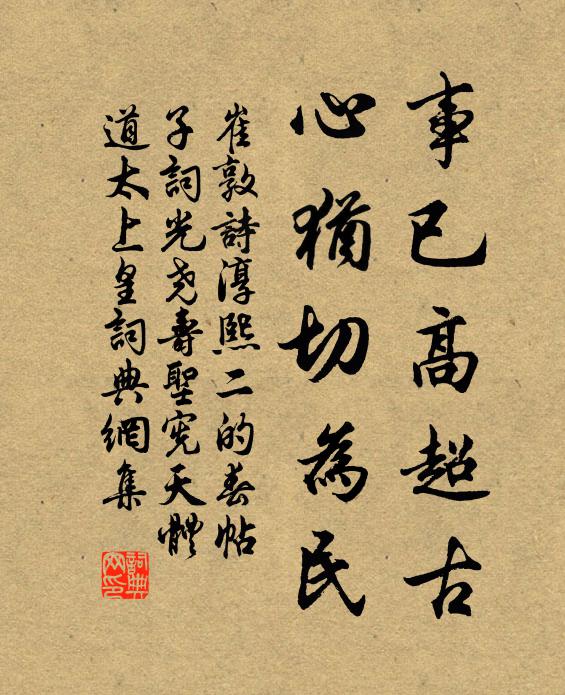 事已高超古
心猶切為民
崔敦詩淳熙二的春帖
子詞光尧壽聖宪天體
道太上皇詞典網集
詞典网印